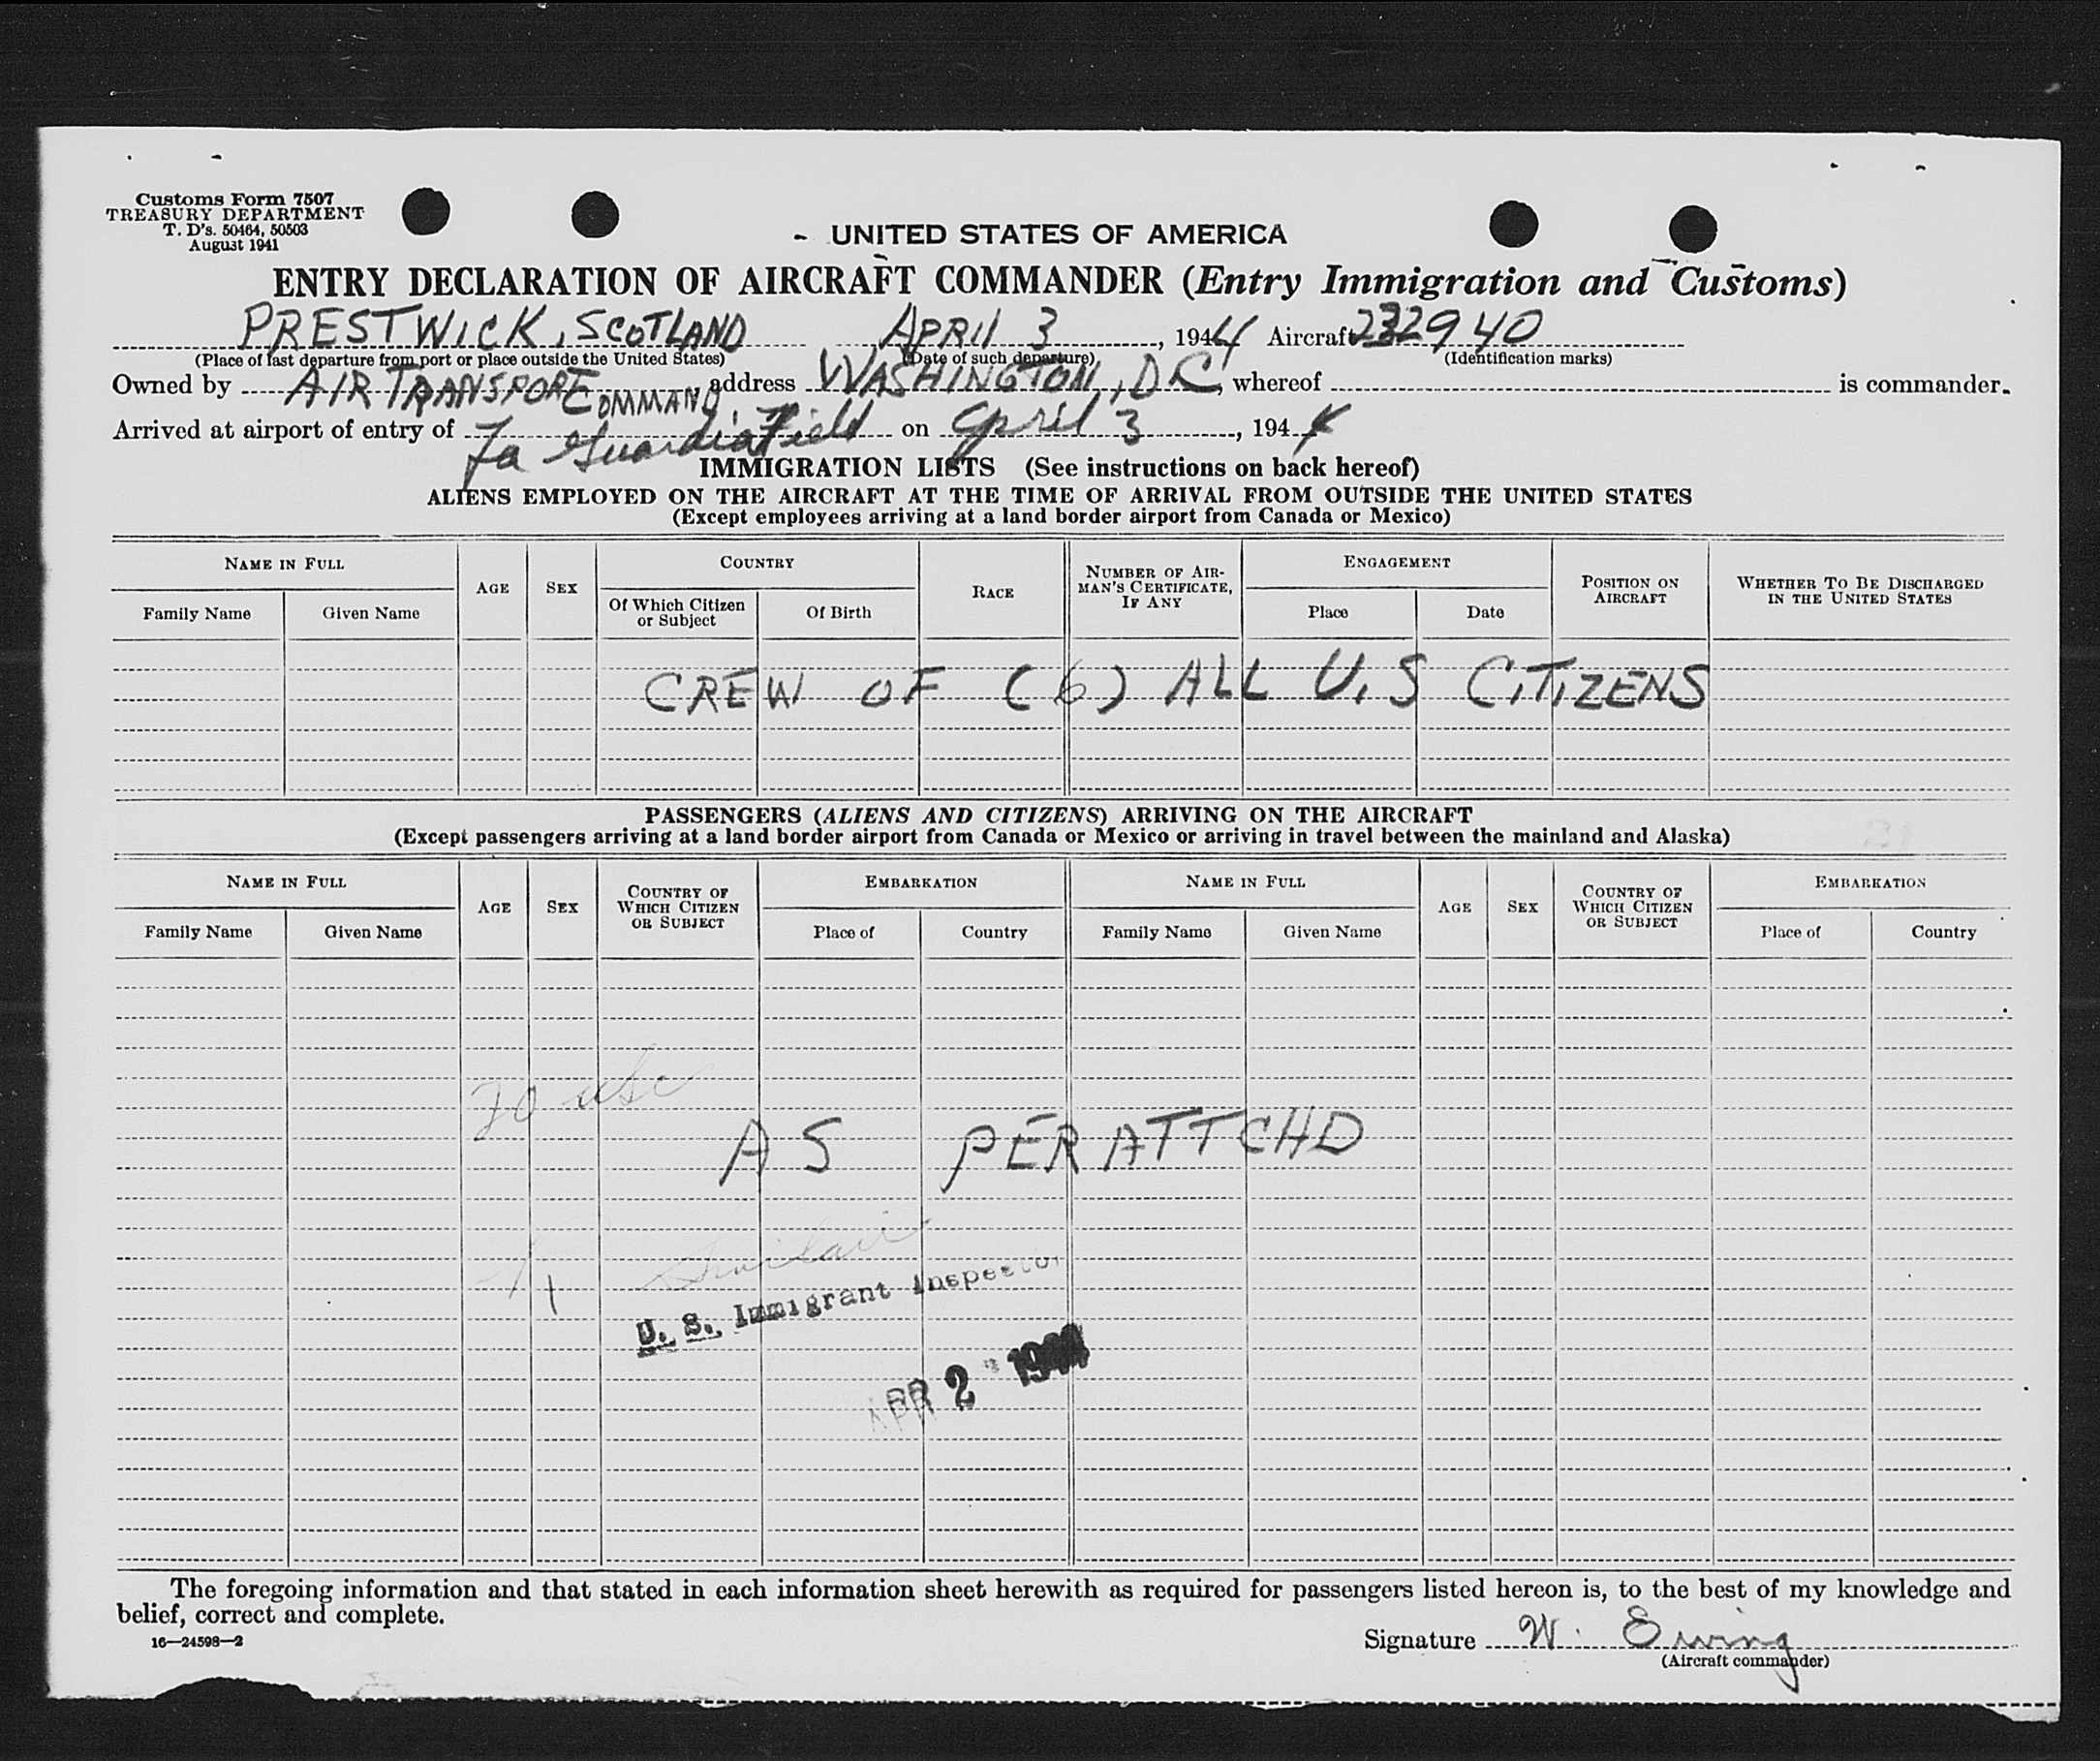 Customs Form 7507
TREASURY DEPARTMENT
T. D's. 50464, 50503
August 1941
UNITED STATES OF AMERICA
ENTRY DECLARATION OF AIRCRAFT COMMANDER (Entry Immigration and Customs)
PRESTWICK, SCOTLAND APRIL 3, 1944 Aircraft 232940
(Place of last departure from port or place outside the United States) (Date of such departure) (Identification marks)
Owned by AIR TRANSPORT COMMAND, address WASHINGTON, DC, whereof is commander.
Arrived at airport of entry of La Guardia Field on April 3, 1944
IMMIGRATION LISTS (See instructions on back hereof)
ALIENS EMPLOYED ON THE AIRCRAFT AT THE TIME OF ARRIVAL FROM OUTSIDE THE UNITED STATES
(Except employees arriving at a land border airport from Canada or Mexico)
NAME IN FULL AGE SEX COUNTRY RACE NUMBER OF AIRMAN'S CERTIFICATE, IF ANY ENGAGEMENT POSITION ON AIRCRAFT WHETHER TO BE DISCHARGED IN THE UNITED STATES
Family Name Given Name Of Which Citizen or Subject Of Birth Place Date
CREW OF (6) ALL U.S CITIZENS
PASSENGERS (ALIENS AND CITIZENS) ARRIVING ON THE AIRCRAFT
(Except passengers arriving at a land border airport from Canada or Mexico or arriving in travel between the mainland and Alaska)
NAME IN FULL AGE SEX COUNTRY OF WHICH CITIZEN OR SUBJECT EMBARKATION NAME IN FULL AGE SEX COUNTRY OF WHICH CITIZEN OR SUBJECT EMBARKATION
Family Name Given Name Place of Country Family Name Given Name Place of Country
20 usc
AS PER ATTCHD
U. S. Immigrant Inspector
APR 2 1944
The foregoing information and that stated in each information sheet herewith as required for passengers listed hereon is, to the best of my knowledge and
belief, correct and complete.
16—24598—2
Signature W. Ewing
(Aircraft commander)